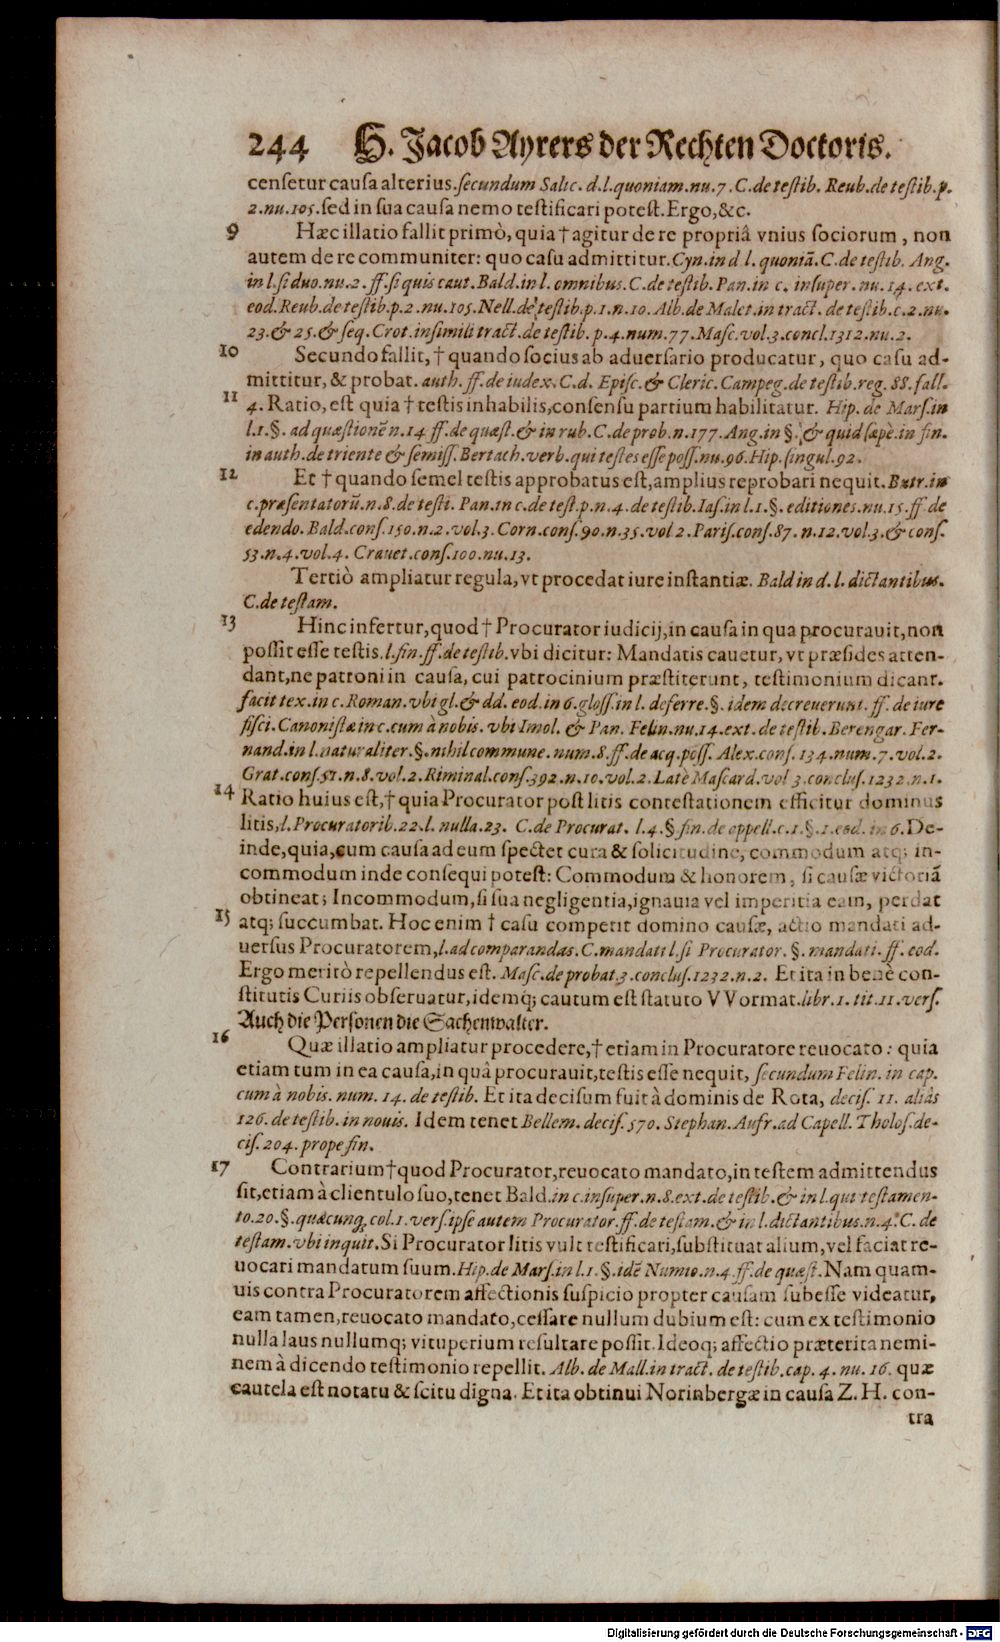 244 H. Jacob Ayrers der Rechten Doctoris.
censetur causa alterius. secundum Salic. d. l. quoniam. nu. 7. C. de testib. Reub. de testib. p.
2. nu. 105. sed in sua causa nemo testificari potest. Ergo, &c.
9 Hæc illatio fallit primò, quia † agitur de re propriâ vnius sociorum, non
autem de re communiter: quo casu admittitur. Cyn. in d l. quoniā. C. de testib. Ang.
in l. si duo. nu. 2. ff. si quis caut. Bald. in l. omnibus. C. de testib. Pan. in c. insuper. nu. 14. ext.
eod. Reub. de testib. p. 2. nu. 105. Nell. de testib. p. 1. n. 10. Alb. de Malet. in tract. de testib. c. 2. nu.
23. & 25. & seq. Crot. in simili tract. de testib. p. 4. num. 77. Masc. vol. 3. concl. 1312. nu. 2.
10 Secundo fallit, † quando socius ab aduersario producatur, quo casu ad-
mittitur, & probat. auth. ff. de iudex. C. d. Episc. & Cleric. Campeg. de testib. reg. 88. fall.
11 4. Ratio, est quia † testis inhabilis, consensu partium habilitatur. Hip. de Mars. in
l. 1. §. ad quæstionē n. 14 ff. de quæst. & in rub. C. de prob. n. 177. Ang. in §. & quid sæpè. in fin.
in auth. de triente & semiss. Bertach. verb. qui testes esse poss. nu. 96. Hip. singul. 92.
12 Et † quando semel testis approbatus est, amplius reprobari nequit. Batr. in
c. præsentatorū. n. 8. de testi. Pan. in c. de test. p. n. 4. de testib. Ias. in l. 1. §. editiones. nu. 15. ff. de
edendo. Bald. cons. 150. n. 2. vol. 3. Corn. cons. 90. n. 35. vol 2. Paris. cons. 87. n. 12. vol. 3. & cons.
53. n. 4. vol. 4. Crauet. cons. 100. nu. 13.
Tertiò ampliatur regula, vt procedat iure instantiæ. Bald in d. l. dictantibus.
C. de testam.
13 Hinc infertur, quod † Procurator iudicij, in causa in qua procurauit, non
possit esse testis. l. fin. ff. de testib. vbi dicitur: Mandatis cauetur, vt præsides atten-
dant, ne patroni in causa, cui patrocinium præstiterunt, testimonium dicant.
facit tex. in c. Roman. vbi gl. & dd. eod. in 6. gloss. in l. deferre. §. idem decreuerunt. ff. de iure
fisci. Canonistæ in c. cum à nobis. vbi Imol. & Pan. Felin. nu. 14. ext. de testib. Berengar. Fer-
nand. in l. naturaliter. §. nihil commune. num. 8. ff. de acq. poss. Alex. cons. 134. num. 7. vol. 2.
Grat. cons. 51. n. 8. vol. 2. Riminal. cons. 392. n. 10. vol. 2. Latè Mascard. vol 3. conclus. 1232. n. 1.
14 Ratio huius est, † quia Procurator post litis contestationem efficitur dominus
litis, l. Procuratorib. 22. l. nulla. 23. C. de Procurat. l. 4. § fin. de appell. c. 1. §. 1. eod. in 6. De-
inde, quia, cum causa ad eum spectet cura & solicitudine, commodum atq; in-
commodum inde consequi potest: Commodum & honorem, si causæ victoriā
obtineat; Incommodum, si sua negligentia, ignauia vel imperitia eam, perdat
15 atq; succumbat. Hoc enim † casu competit domino causæ, actio mandati ad-
uersus Procuratorem, l. ad comparandas. C. mandati l. si Procurator. §. mandati. ff. eod.
Ergo meritò repellendus est. Masc. de probat. 3. conclus. 1232. n. 2. Et ita in benè con-
stitutis Curiis obseruatur, idemq; cautum est statuto VVormat. libr. 1. tit. 11. vers.
Auch die Personen die Sachenwalter.
16 Quæ illatio ampliatur procedere, † etiam in Procuratore reuocato: quia
etiam tum in ea causa, in quâ procurauit, testis esse nequit, secundum Felin. in cap.
cum à nobis. num. 14. de testib. Et ita decisum fuit â dominis de Rota, decis. 11. aliâs
126. de testib. in nouis. Idem tenet Bellem. decis. 570. Stephan. Aufr. ad Capell. Tholos. de-
cis. 204. prope fin.
17 Contrarium † quod Procurator, reuocato mandato, in testem admittendus
sit, etiam à clientulo suo, tenet Bald. in c. insuper. n. 8. ext. de testib. & in l. qui testamen-
to. 20. §. quæcunq; col. 1. vers. ipse autem Procurator. ff. de testam. & in l. dictantibus. n. 4. C. de
testam. vbi inquit. Si Procurator litis vult testificari, substituat alium, vel faciat re-
uocari mandatum suum. Hip. de Mars. in l. 1. §. idē Numio. n. 4. ff. de quæst. Nam quam-
uis contra Procuratorem affectionis suspicio propter causam subesse videatur,
eam tamen, reuocato mandato, cessare nullum dubium est: cum ex testimonio
nulla laus nullumq; vituperium resultare possit. Ideoq; affectio præterita nemi-
nem à dicendo testimonio repellit. Alb. de Mall. in tract. de testib. cap. 4. nu. 16. quæ
cautela est notatu & scitu digna. Et ita obtinui Norinbergæ in causa Z. H. con-
tra
Digitalisierung gefördert durch die Deutsche Forschungsgemeinschaft - DFG